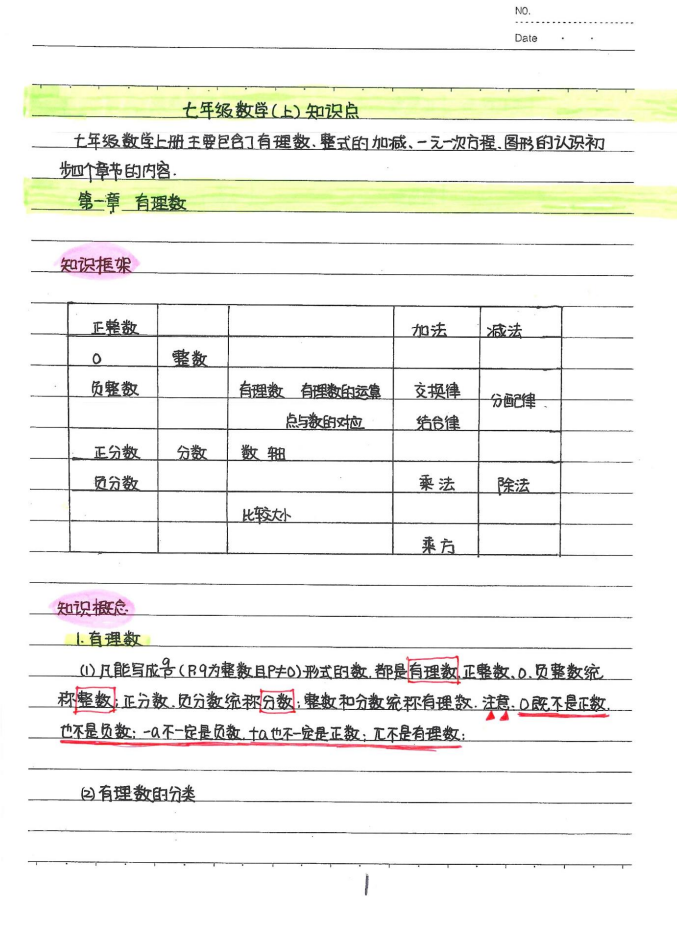 NO.
Date
七年级数学(上)知识点
七年级数学上册主要包含了有理数、整式的加减、一元一次方程、图形的认识初
步四个章节的内容.
第一章 有理数
知识框架
正整数 加法 减法
0 整数
负整数 有理数 有理数的运算 交换律 分配律
点与数的对应 结合律
正分数 分数 数轴
负分数 乘法 除法
比较大小
乘方
知识概念
1.有理数
(1)凡能写成q/p(P.q为整数且P≠0)形式的数,都是有理数,正整数、0、负整数统
称整数;正分数、负分数统称分数;整数和分数统称有理数.注意:0既不是正数,
也不是负数;-a不一定是负数,+a也不一定是正数;π不是有理数;
(2)有理数的分类
1